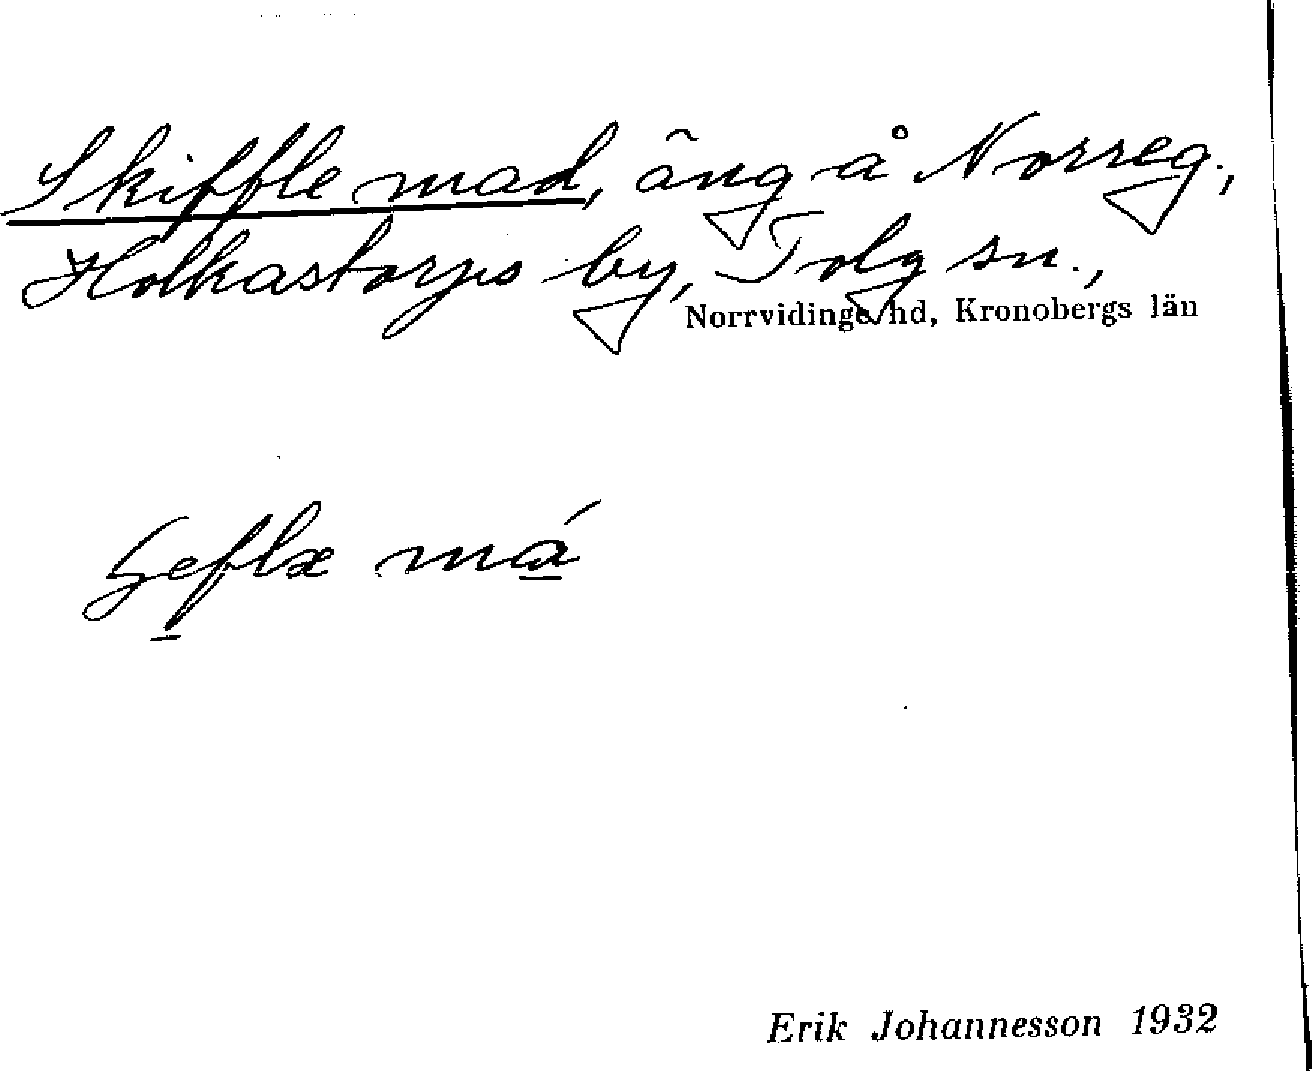 Skiffle mad, äng å Norreg.,
Holkastorps by, Tolg sn.,
Norrvidinge hd, Kronobergs län
ʂeflæ má
Erik Johannesson 1932